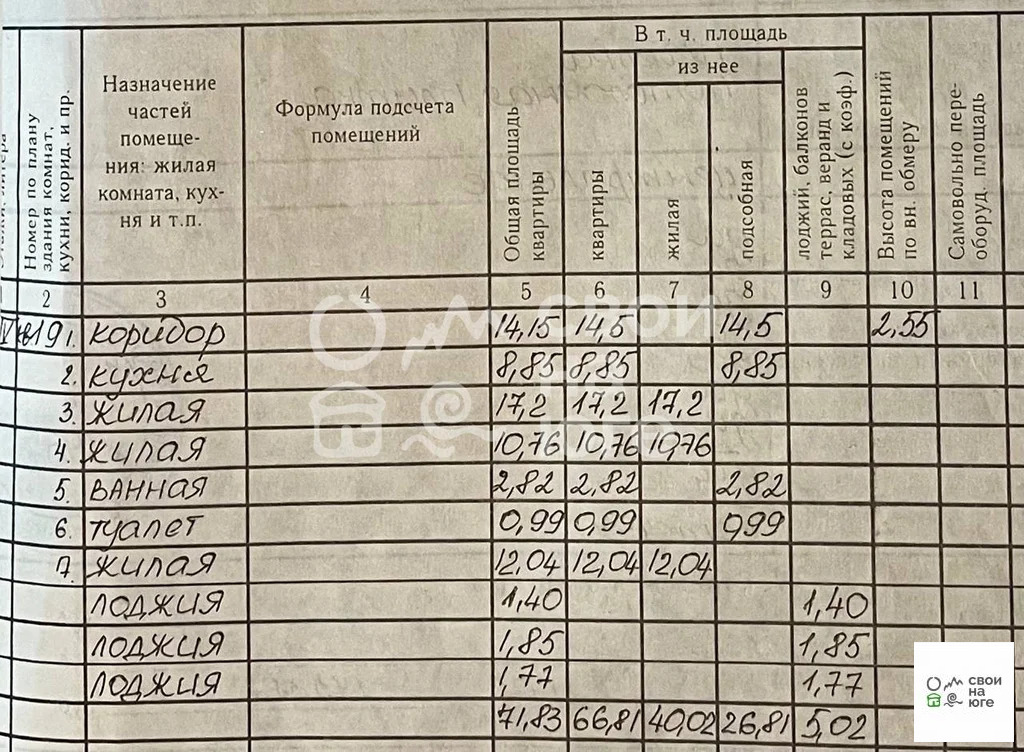 В т. ч. площадь
из нее
Номер по плану
здания комнат,
кухни, корид. и пр.
Назначение
частей
помеще-
ния: жилая
комната, кух-
ня и т.п.
Формула подсчета
помещений
Общая площадь
квартиры
квартиры
жилая
подсобная
лоджий, балконов
террас, веранд и
кладовых (с коэф.)
Высота помещений
по вн. обмеру
Самовольно пере-
оборуд. площадь
2 3 4 5 6 7 8 9 10 11
IV кв19 1. коридор 14,15 14,5 14,5 2,55
2. кухня 8,85 8,85 8,85
3. жилая 17,2 17,2 17,2
4. жилая 10,76 10,76 10,76
5. ванная 2,82 2,82 2,82
6. туалет 0,99 0,99 0,99
7. жилая 12,04 12,04 12,04
лоджия 1,40 1,40
лоджия 1,85 1,85
лоджия 1,77 1,77
71,83 66,81 40,02 26,81 5,02
СВОИ
НА
ЮГЕ
СВОИ
НА
ЮГЕ